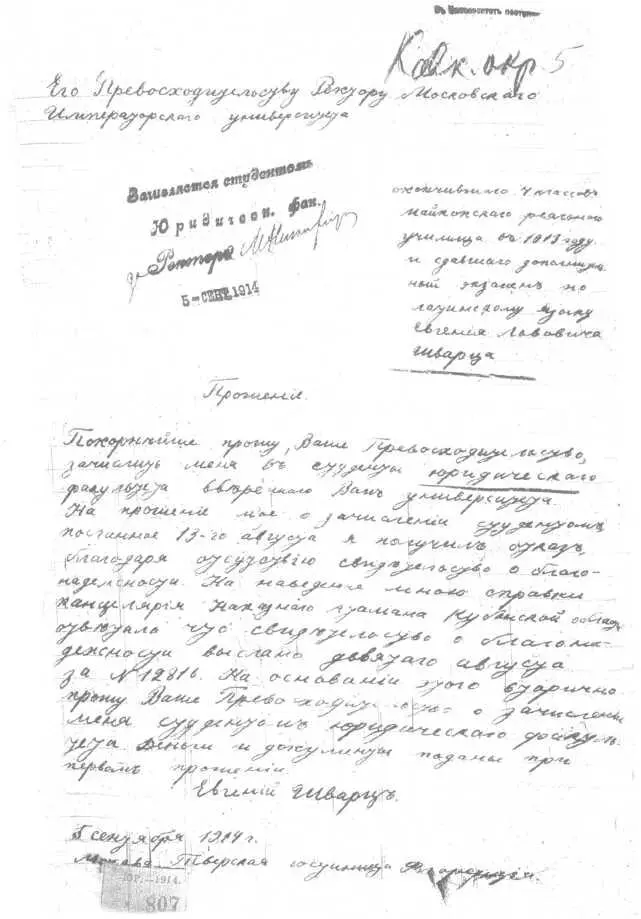 Въ Университетъ поступи
Кавк. окр. 5
Его Превосходительству Ректору Московскаго
Императорскаго университета
Зачисляется студентомъ
Юридическ. фак.
Ректоръ
5 - СЕНТ. 1914
окончившаго 7 классовъ
Майкопскаго реальнаго
училища въ 1913 году
и сдавшаго дополнитель
ный экзаменъ по
латинскому языку
Евгенія Львовича
Шварца
Прошеніе.
Покорнѣйше прошу, Ваше Превосходительство,
зачислить меня въ студенты юридическаго
факультета ввѣреннаго Вамъ университета.
На прошеніе мое о зачисленіи студентомъ,
посланное 13-го августа я получилъ отказъ,
благодаря отсутствію свидѣтельства о благо-
надежности. На наведенныя мною справки
канцелярія Наказнаго атамана Кубанской области
отвѣчала что свидѣтельство о благона-
дежности выслано девятаго августа
за N 12816. На основаніи этого вторично
прошу Ваше Превосходительство о зачисленіи
меня студентомъ юридическаго факуль-
тета. Деньги и документы поданы при
первомъ прошеніи.
Евгеній Шварцъ.
5 сентября 1914 г.
Москва Тверская гостиница
ЮР.-1914.
807